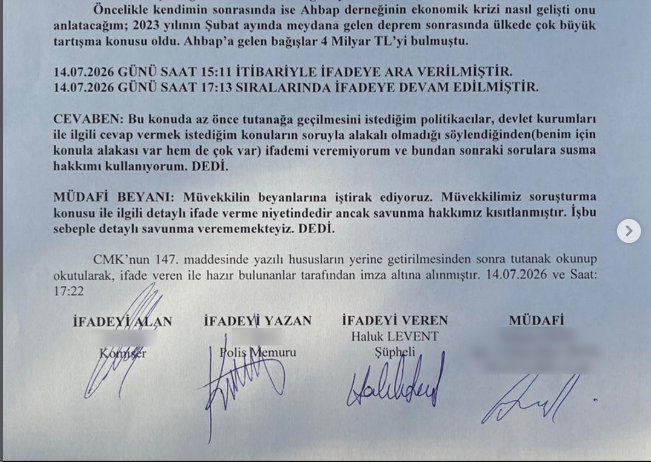 Öncelikle kendimin sonrasında ise Ahbap derneğinin ekonomik krizi nasıl gelişti onu
anlatacağım; 2023 yılının Şubat ayında meydana gelen deprem sonrasında ülkede çok büyük
tartışma konusu oldu. Ahbap'a gelen bağışlar 4 Milyar TL'yi bulmuştu.
14.07.2026 GÜNÜ SAAT 15:11 İTİBARİYLE İFADEYE ARA VERİLMİŞTİR.
14.07.2026 GÜNÜ SAAT 17:13 SIRALARINDA İFADEYE DEVAM EDİLMİŞTİR.
CEVABEN: Bu konuda az önce tutanağa geçilmesini istediğim politikacılar, devlet kurumları
ile ilgili cevap vermek istediğim konuların soruyla alakalı olmadığı söylendiğinden(benim için
konula alakası var hem de çok var) ifademi veremiyorum ve bundan sonraki sorulara susma
hakkımı kullanıyorum. DEDİ.
MÜDAFİ BEYANI: Müvekkilin beyanlarına iştirak ediyoruz. Müvekkilimiz soruşturma
konusu ile ilgili detaylı ifade verme niyetindedir ancak savunma hakkımız kısıtlanmıştır. İşbu
sebeple detaylı savunma verememekteyiz. DEDİ.
CMK'nun 147. maddesinde yazılı hususların yerine getirilmesinden sonra tutanak okunup
okutularak, ifade veren ile hazır bulunanlar tarafından imza altına alınmıştır. 14.07.2026 ve Saat:
17:22
İFADEYİ ALAN İFADEYİ YAZAN İFADEYİ VEREN MÜDAFİ
Haluk LEVENT
Komiser Polis Memuru Şüpheli